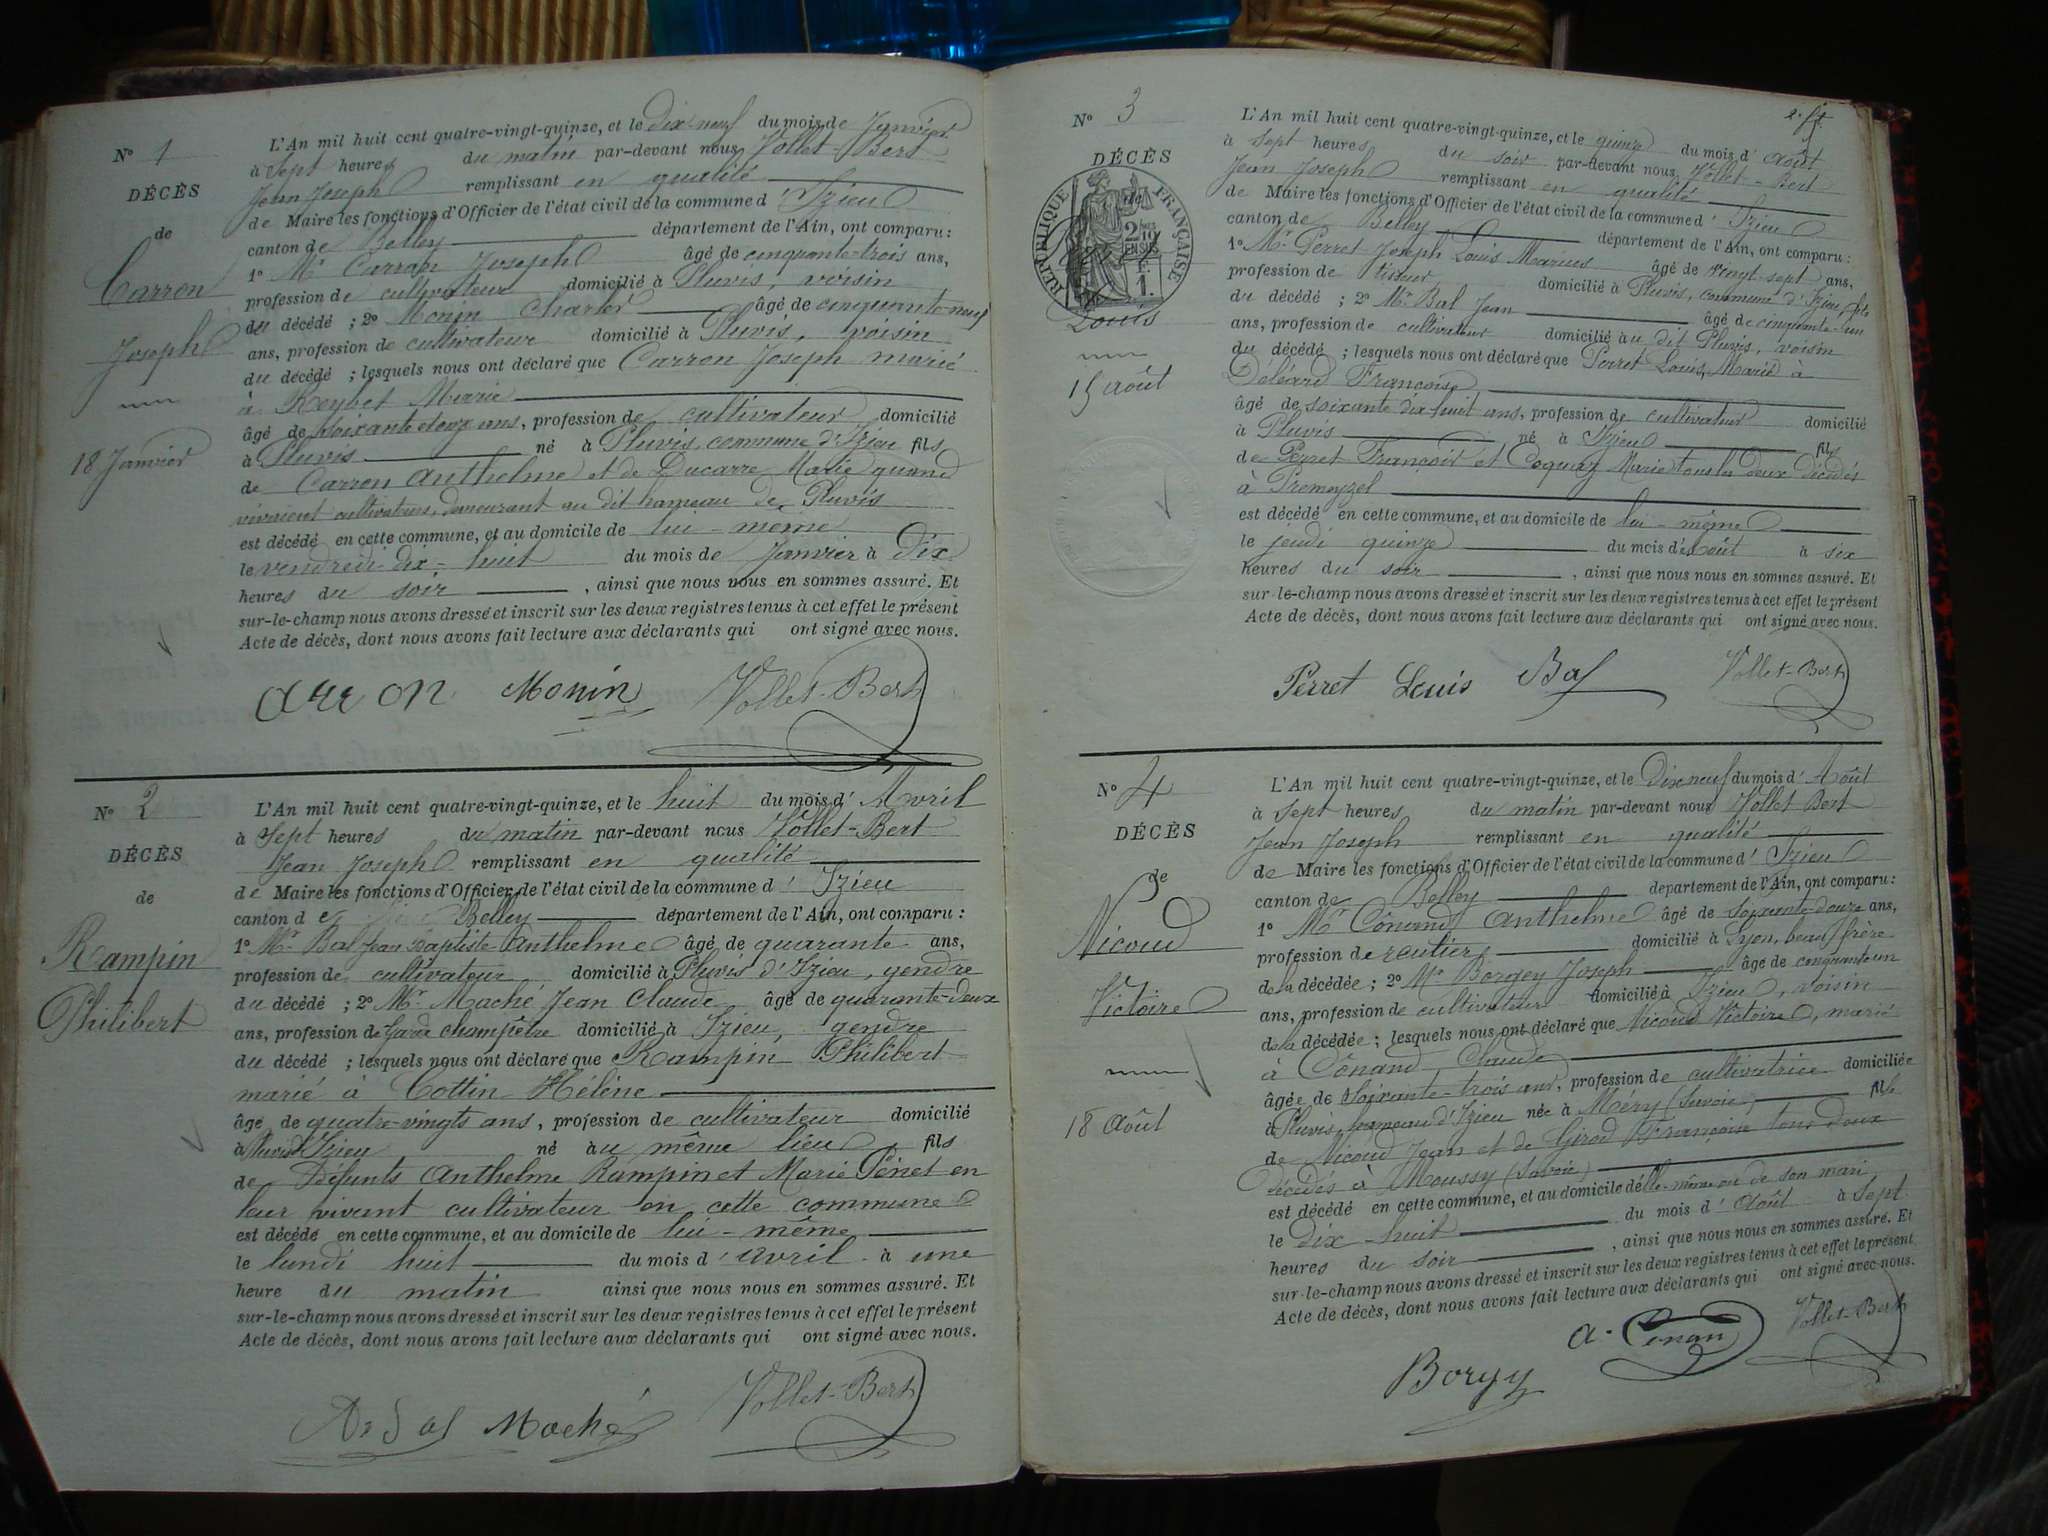 N° 1
DÉCÈS
de
Carron
Joseph
18 Janvier
L'An mil huit cent quatre-vingt-quinze, et le dix neuf du mois de Janvier
à Sept heures du matin par-devant nous Vollet-Bert
Jean Joseph remplissant en qualité
de Maire les fonctions d'Officier de l'état civil de la commune d'Izieu
canton de Belley département de l'Ain, ont comparu :
1° Mr Carron Joseph âgé de cinquante-trois ans,
profession de cultivateur domicilié à Pluvis, voisin
du décédé ; 2° Monin Charles âgé de cinquante-neuf
ans, profession de cultivateur domicilié à Pluvis, voisin
du décédé ; lesquels nous ont déclaré que Carron Joseph marié
à Reybet Marie
âgé de soixante et onze ans, profession de cultivateur domicilié
à Pluvis né à Pluvis commune d'Izieu fils
de Carron Anthelme et de Ducarre Marie quand
vivaient cultivateurs, demeurant au dit hameau de Pluvis
est décédé en cette commune, et au domicile de lui-même
le vendredi dix-huit du mois de Janvier à dix
heures du soir , ainsi que nous nous en sommes assuré. Et
sur-le-champ nous avons dressé et inscrit sur les deux registres tenus à cet effet le présent
Acte de décès, dont nous avons fait lecture aux déclarants qui ont signé avec nous.
Monin Vollet-Bert
N° 2
DÉCÈS
de
Rampin
Philibert
L'An mil huit cent quatre-vingt-quinze, et le huit du mois d'Avril
à Sept heures du matin par-devant nous Vollet-Bert
Jean Joseph remplissant en qualité
de Maire les fonctions d'Officier de l'état civil de la commune d'Izieu
canton de Belley département de l'Ain, ont comparu :
1° Mr Bal Jean Baptiste Anthelme âgé de quarante ans,
profession de cultivateur domicilié à Pluvis d'Izieu, gendre
du décédé ; 2° Mr Maché Jean Claude âgé de quarante-deux
ans, profession de garde champêtre domicilié à Izieu, gendre
du décédé ; lesquels nous ont déclaré que Rampin Philibert
marié à Cottin Hélène
âgé de quatre-vingts ans, profession de cultivateur domicilié
à Pluvis Izieu né au même lieu fils
de Défunts Anthelme Rampin et Marie Penet en
leur vivant cultivateur en cette commune
est décédé en cette commune, et au domicile de lui-même
le lundi huit du mois d'avril à une
heure du matin ainsi que nous nous en sommes assuré. Et
sur-le-champ nous avons dressé et inscrit sur les deux registres tenus à cet effet le présent
Acte de décès, dont nous avons fait lecture aux déclarants qui ont signé avec nous.
Maché Vollet-Bert
N° 3
DÉCÈS
de
RÉPUBLIQUE FRANÇAISE
Louis
15 août
L'An mil huit cent quatre-vingt-quinze, et le quinze du mois d'août
à sept heures du soir par-devant nous Vollet-Bert
Jean Joseph remplissant en qualité
de Maire les fonctions d'Officier de l'état civil de la commune d'Izieu
canton de Belley département de l'Ain, ont comparu :
1° Mr Perret Joseph Louis Marius âgé de vingt sept ans,
profession de tisseur domicilié à Pluvis, commune d'Izieu, fils
du décédé ; 2° Mr Bal Jean âgé de cinquante-un
ans, profession de cultivateur domicilié au dit Pluvis, voisin
du décédé ; lesquels nous ont déclaré que Perret Louis, Marié à
Déléard Françoise
âgé de soixante dix-huit ans, profession de cultivateur domicilié
à Pluvis né à Izieu fils
de Perret François et Coquay Marie tous les deux décédés
à Premeyzel
est décédé en cette commune, et au domicile de lui-même
le jeudi quinze du mois d'août à six
heures du soir , ainsi que nous nous en sommes assuré. Et
sur-le-champ nous avons dressé et inscrit sur les deux registres tenus à cet effet le présent
Acte de décès, dont nous avons fait lecture aux déclarants qui ont signé avec nous.
Perret Louis Bal Vollet-Bert
N° 4
DÉCÈS
de
Nicoud
Victoire
18 août
L'An mil huit cent quatre-vingt-quinze, et le dix neuf du mois d'Août
à sept heures du matin par-devant nous Vollet Bert
Jean Joseph remplissant en qualité
de Maire les fonctions d'Officier de l'état civil de la commune d'Izieu
canton de Belley département de l'Ain, ont comparu :
1° Mr Cônand Anthelme âgé de soixante-douze ans,
profession de rentier domicilié à Lyon, beau frère
de la décédée ; 2° Mr Borgey Joseph âgé de cinquante un
ans, profession de cultivateur domicilié à Izieu, voisin
de la décédée ; lesquels nous ont déclaré que Nicoud Victoire, marié
à Cônand, Claude
âgée de soixante-trois ans, profession de cultivatrice domiciliée
à Pluvis, hameau d'Izieu née à Méry (Savoie) fille
de Nicoud Jean et de Girod Françoise tous deux
décédés à Moussy (Savoie)
est décédée en cette commune, et au domicile d'elle-même ou de son mari
le dix-huit du mois d'août à sept
heures du soir , ainsi que nous nous en sommes assuré. Et
sur-le-champ nous avons dressé et inscrit sur les deux registres tenus à cet effet le présent
Acte de décès, dont nous avons fait lecture aux déclarants qui ont signé avec nous.
A. Conan Vollet-Bert
Borgey